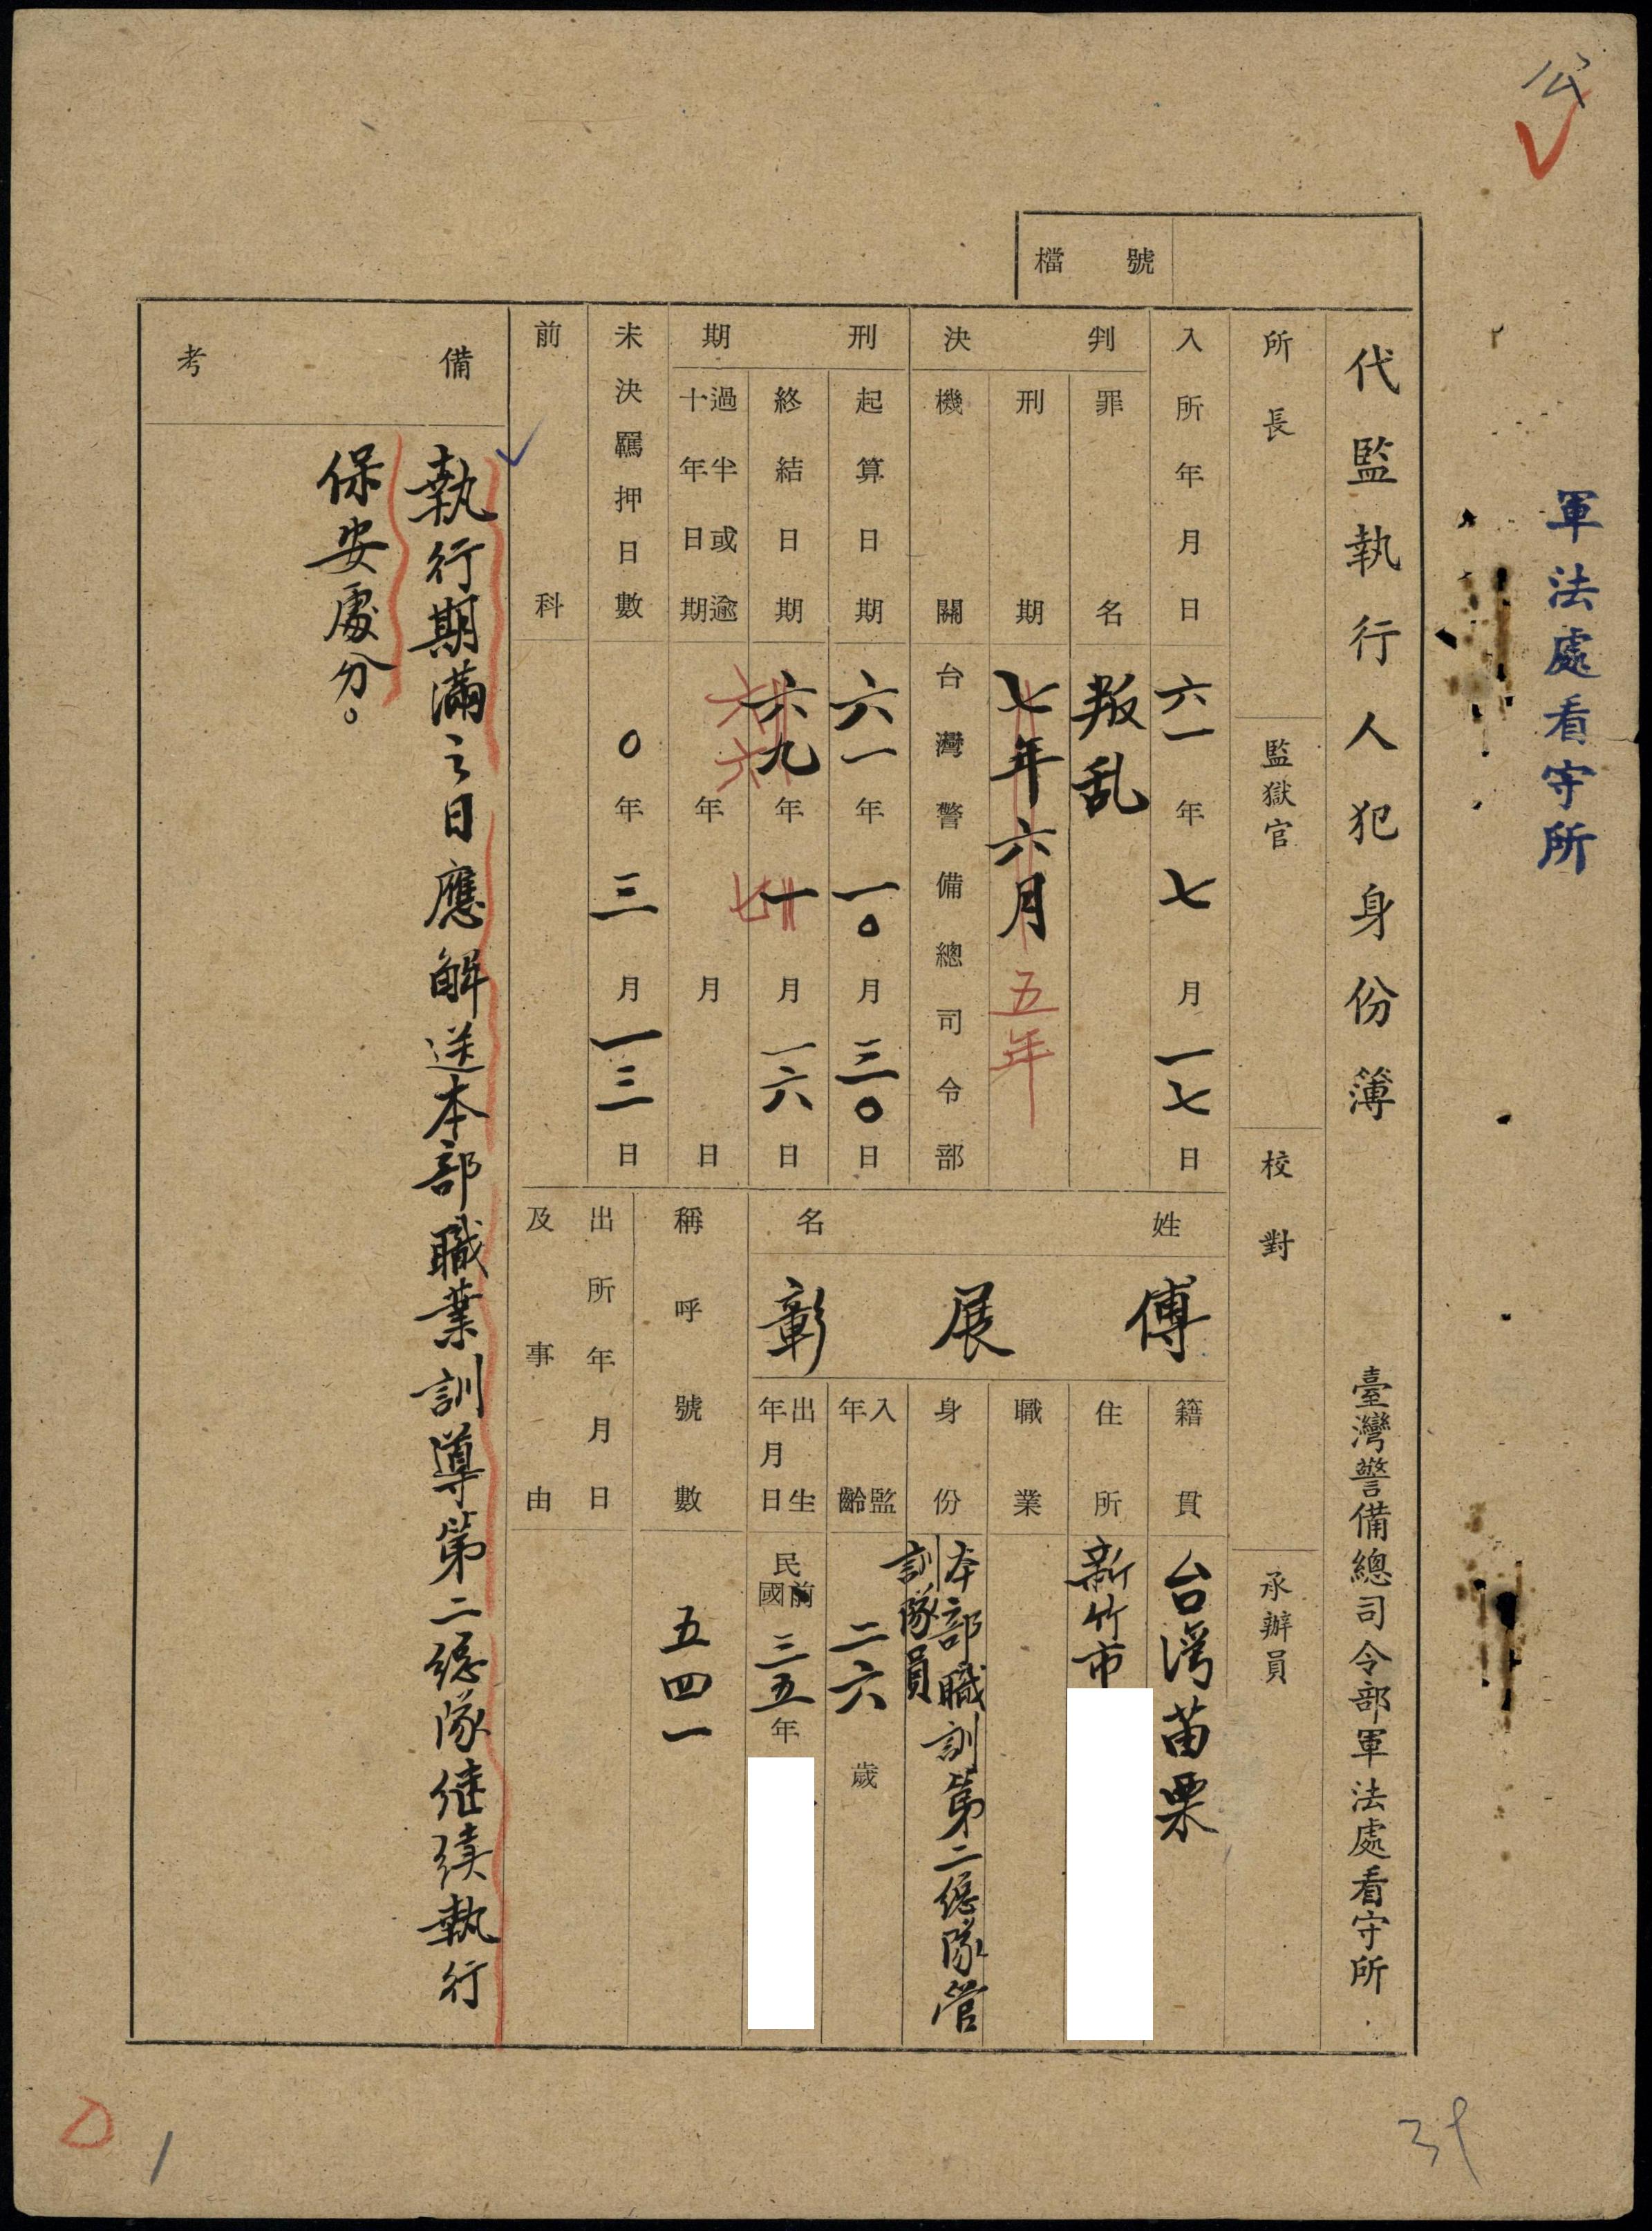 公
軍法處看守所
檔號
代監執行人犯身份簿 臺灣警備總司令部軍法處看守所
所長 監獄官 校對 承辦員
入所年月日 六一年七月一七日
判決
罪名 叛乱
刑期 七年六月 五年
機關 台灣警備總司令部
刑期
起算日期 六一年一〇月三〇日
終結日期 六九年一月一六日
六六 七
過半或逾十年日期 年 月 日
未決羈押日數 〇年三月一三日
前科
姓名
傅展彰
籍貫 台湾苗栗
住所 新竹市
職業
身份 本部職訓第二總隊管訓隊員
入監年齡 二六歲
出生年月日 民國前 三五年
稱呼號數 五四一
出所年月日及事由
備考
執行期滿之日應解送本部職業訓導第二總隊继续執行
保安處分。
D
1